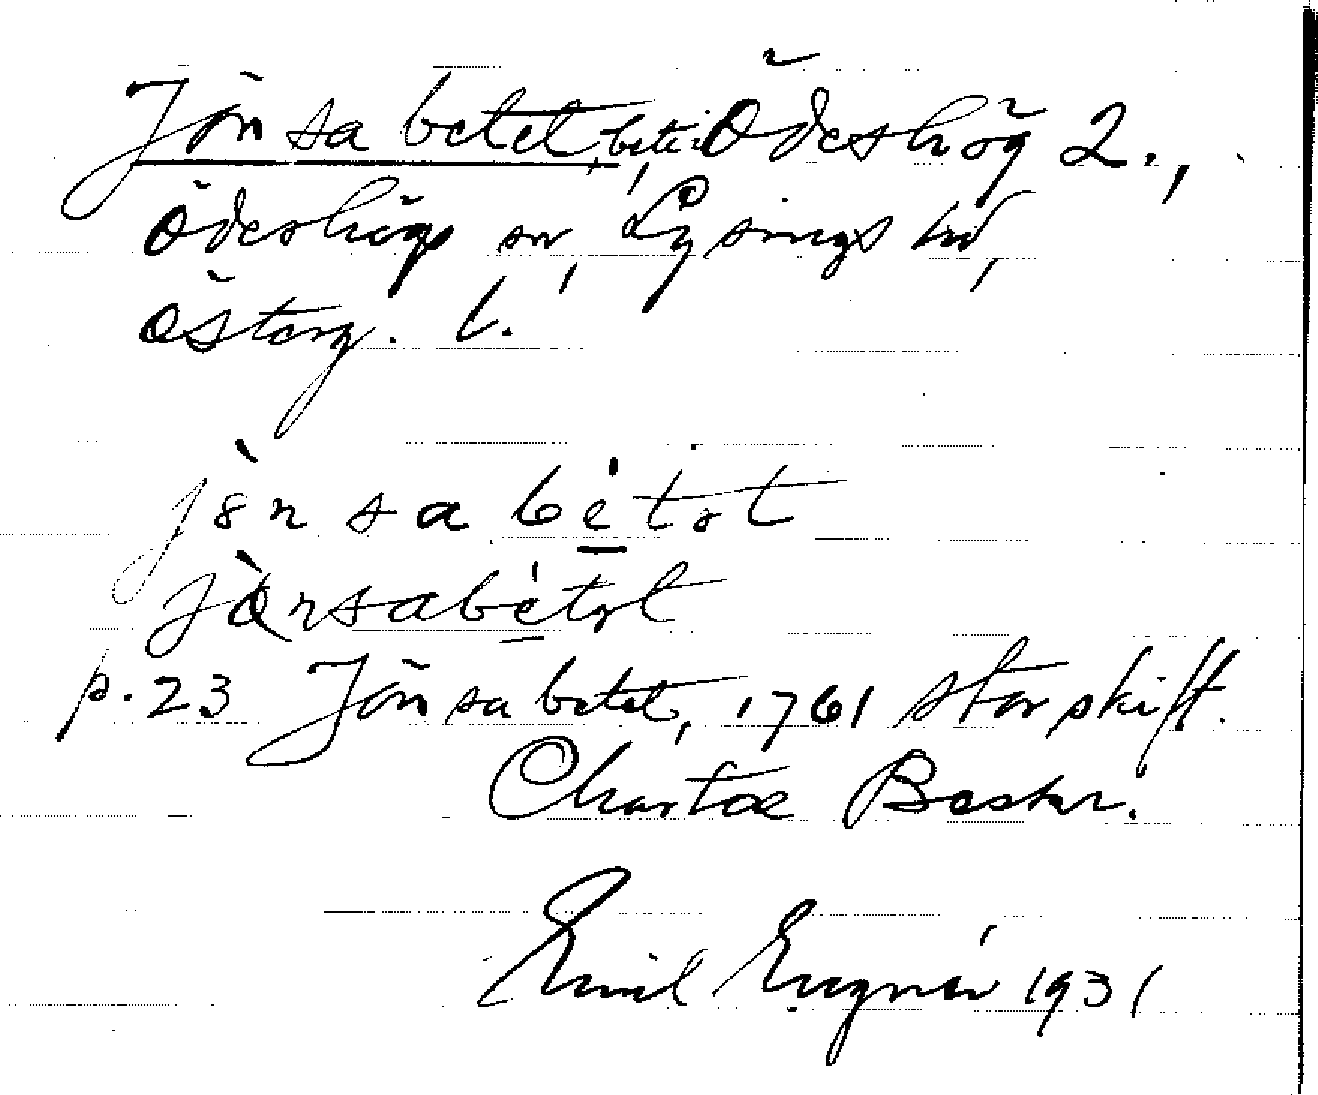 Jönsa betet, bete i Ödeshög 2.,
Ödeshögs sn, Lysings hd,
Österg. l.
jönsa bétət
p. 23 Jönsa betet, 1761 storskift.
Chartæ Beskr.
Emil 1931